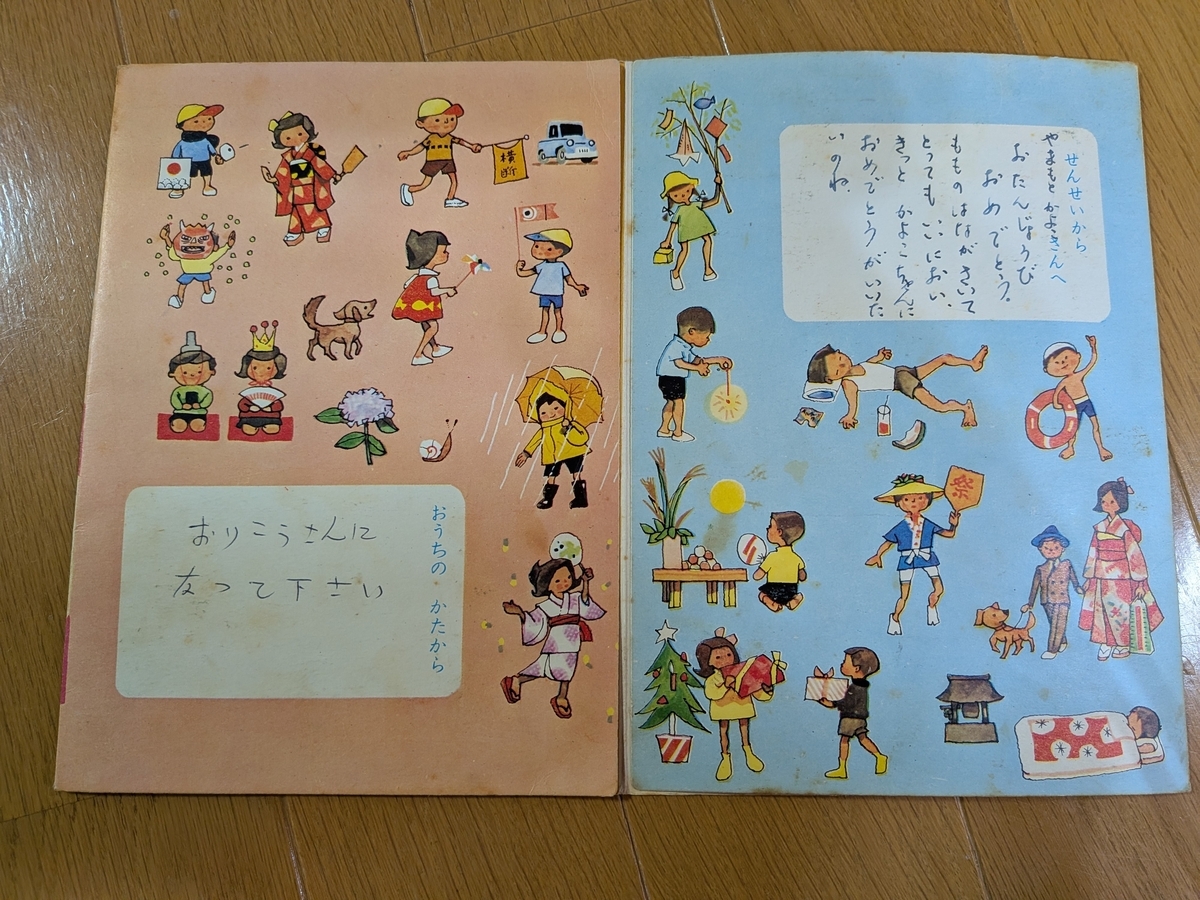 せんせいから
やまもと かよこさんへ
おたんじょうび
おめでとう。
もものはながさいて
とっても いいにおい、
きっと かよこちゃんに
おめでとうがいいた
いのね。
祭
横断
おうちの かたから
おりこうさんに
なって下さい